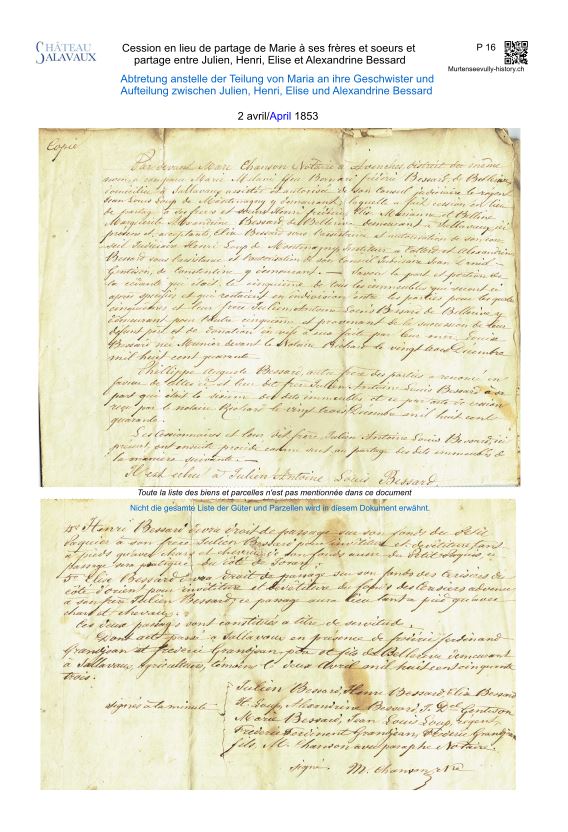 CHÂTEAU
SALAVAUX
Cession en lieu de partage de Marie à ses frères et soeurs et
partage entre Julien, Henri, Elise et Alexandrine Bessard
P 16
Murtenseevully-history.ch
Abtretung anstelle der Teilung von Maria an ihre Geschwister und
Aufteilung zwischen Julien, Henri, Elise und Alexandrine Bessard
2 avril/April 1853
Copie
Par devant Marc Chanson Notaire à Avenches, district du même
nom, a comparu Marie Bessard de Bellerive
domiciliée à Sallavaux assistée et autorisée de son Conseil judiciaire le régent
Jean Louis Loup de Montmagny y demeurant, laquelle a fait cession en lieu
de partage à ses frères et soeurs Henri
Marguerite Alexandrine Bessard de Bellerive demeurant à Sallavaux ici
présens et acceptants, Elise Bessard sous l'assistance et l'autorisation de son con-
seil Judiciaire Henri Loup de Montmagny Instituteur à et Alexandrine
Bessard sous l'assistance et l'autorisation de son Conseil Judiciaire Jean
Gentison, de Constantine y demeurant. — Savoir la part et portion de
la cédante que était le cinquième de tous les immeubles qui seront ci
après spécifiés et qui restaient en indivision entre les parties pour les quatre
cinquièmes et leur frère Julien Antoine Louis Bessard de Bellerive y
demeurant pour l'autre cinquième et provenant de la succession de leur
défunt père et de donation entre vifs à eux faite par leur mère Louise
Bessard née Meunier devant le Notaire Richard le vingt trois Décembre
mil huit cent quarante.
Philippe Auguste Bessard, autre frère des parties a renoncé en
faveur de elles et leur dit frère Julien Antoine Louis Bessard à sa
part qui était le sixième des dits immeubles et ce par acte de cession
reçu par le notaire Richard le vingt trois Décembre mil huit cent
quarante.
Les cessionnaires et leur dit frère Julien Antoine Louis Bessard, ici
présent, ont ensuite procédé comme suit au partage des dits immeubles de
la manière suivante.
Il est échu à Julien Antoine Louis Bessard.
Toute la liste des biens et parcelles n'est pas mentionnée dans ce document
Nicht die gesamte Liste der Güter und Parzellen wird in diesem Dokument erwähnt.
Henri Bessard devra droit de passage sur son fonds du Petit
à son frère Julien Bessard pour investiture et dévêtiture tant
à pieds qu'avec chars et chevaux de son fonds aussi du Petit
passage sera pratiqué du côté de Joran.
5° Elise Bessard devra droit de passage sur son fonds des Cerisiers du
côté d'orient pour investiture et dévêtiture du fonds des advenu
à son frère Julien Bessard, ce passage aura lieu tant à pié qu'avec
chars et chevaux.
Ces deux passages sont constitués à titre de servitude.
Dont acte passé à Sallavaux en présence de Frédéric Ferdinand
Grandjean et Frédéric Grandjean père et fils de Bellerive demeurant
à Sallavaux, Agriculteurs, témoins le deux Avril mil huit cent cinquante
trois.
signés à la minute
Julien Bessard, Henri Bessard, Elise Bessard
H. Loup, Alexandrine Bessard, J. Gentison
Marie Bessard, Jean Louis Loup, régent,
Frédéric Ferdinent Grandjean, Frédéric Grandjean
fils, M. Chanson avec paraphe Notaire.
signé M. Chanson Nre